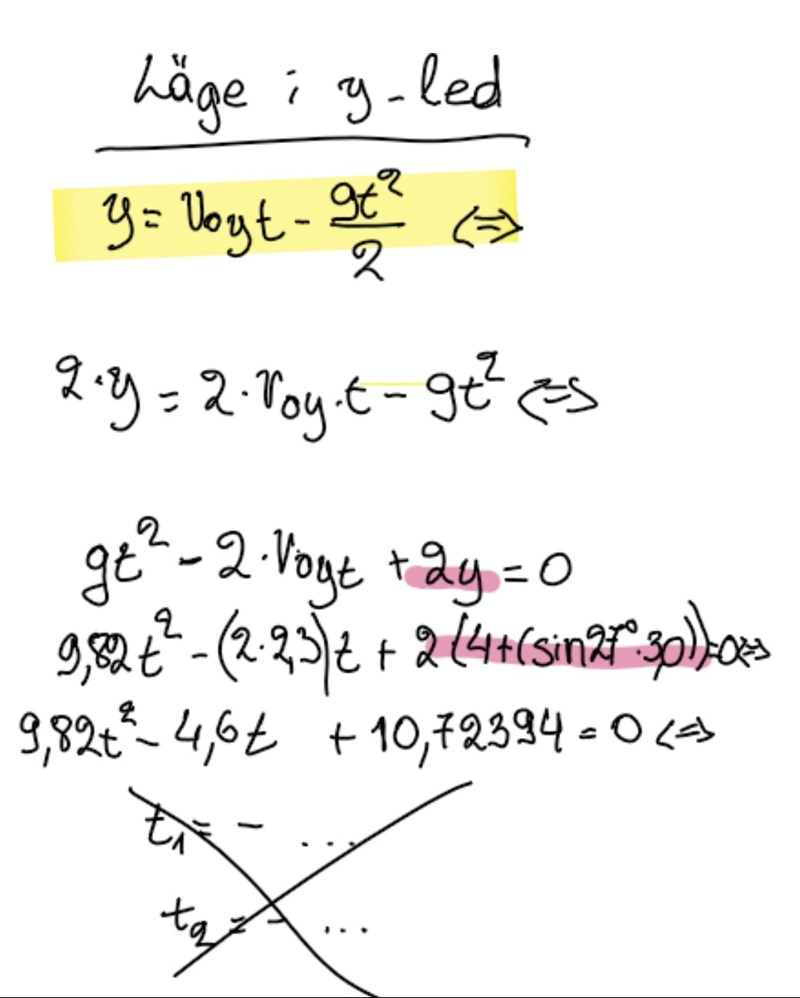 Läge i y-led
y = v₀yt - gt²/2 <=>
2·y = 2·v₀y·t - gt² <=>
gt² - 2·v₀yt + 2y = 0
9,82t² - (2·2,3)t + 2(4+(sin27°·3,0))=0<=>
9,82t² - 4,6t + 10,72394 = 0 <=>
t₁ = - ...
t₂ = - ...